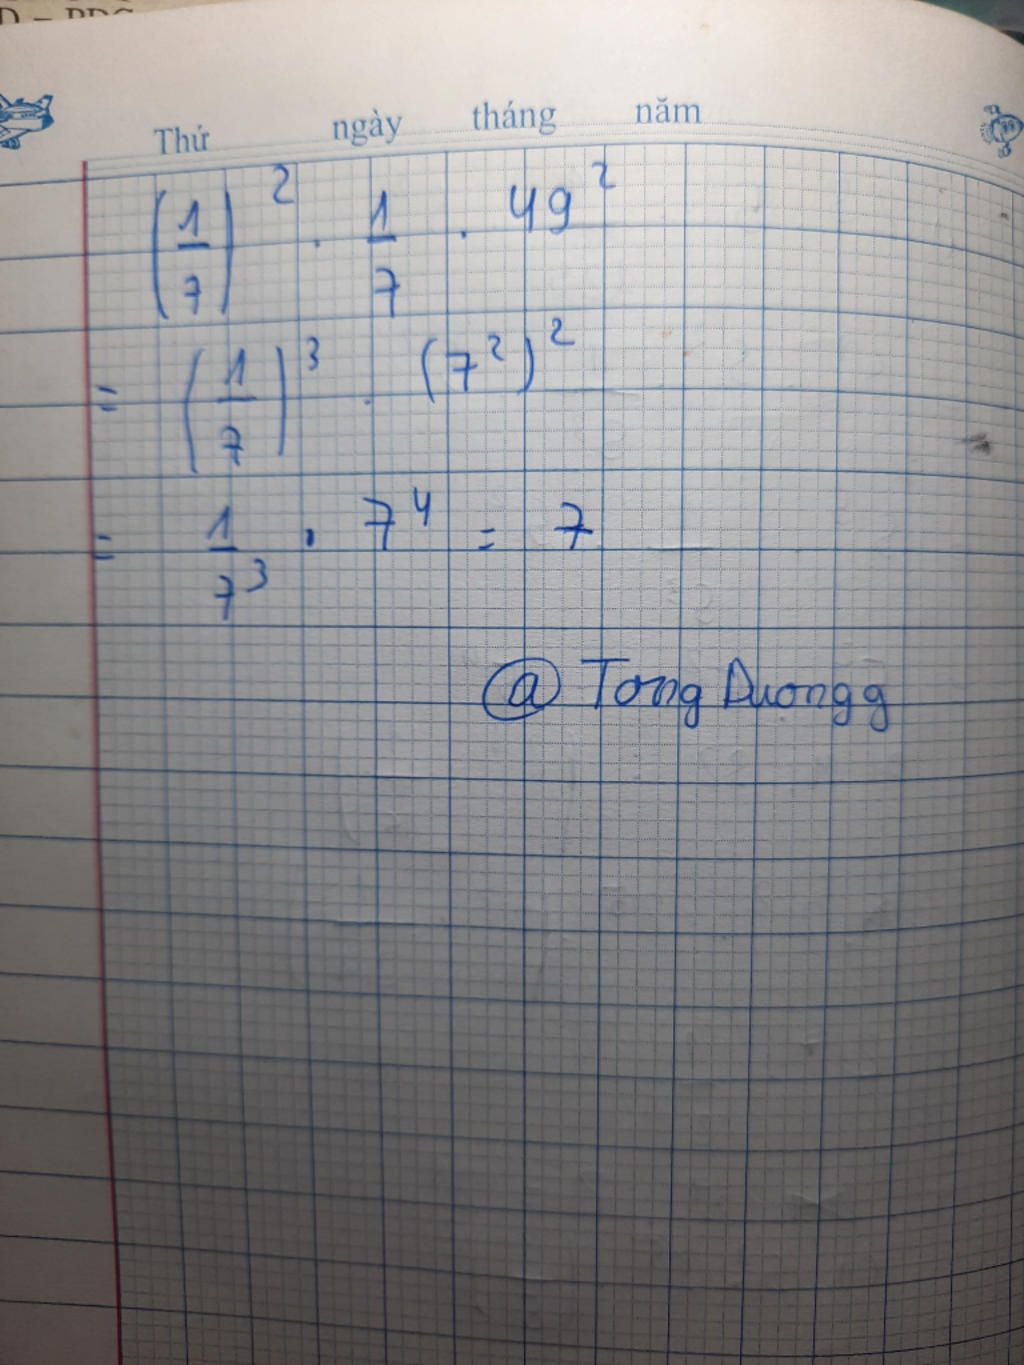 Thứ ngày tháng năm
(1/7)² . 1/7 . 49²
= (1/7)³ . (7²)²
= 1/7³ . 7⁴ = 7
@ Tong Duongg